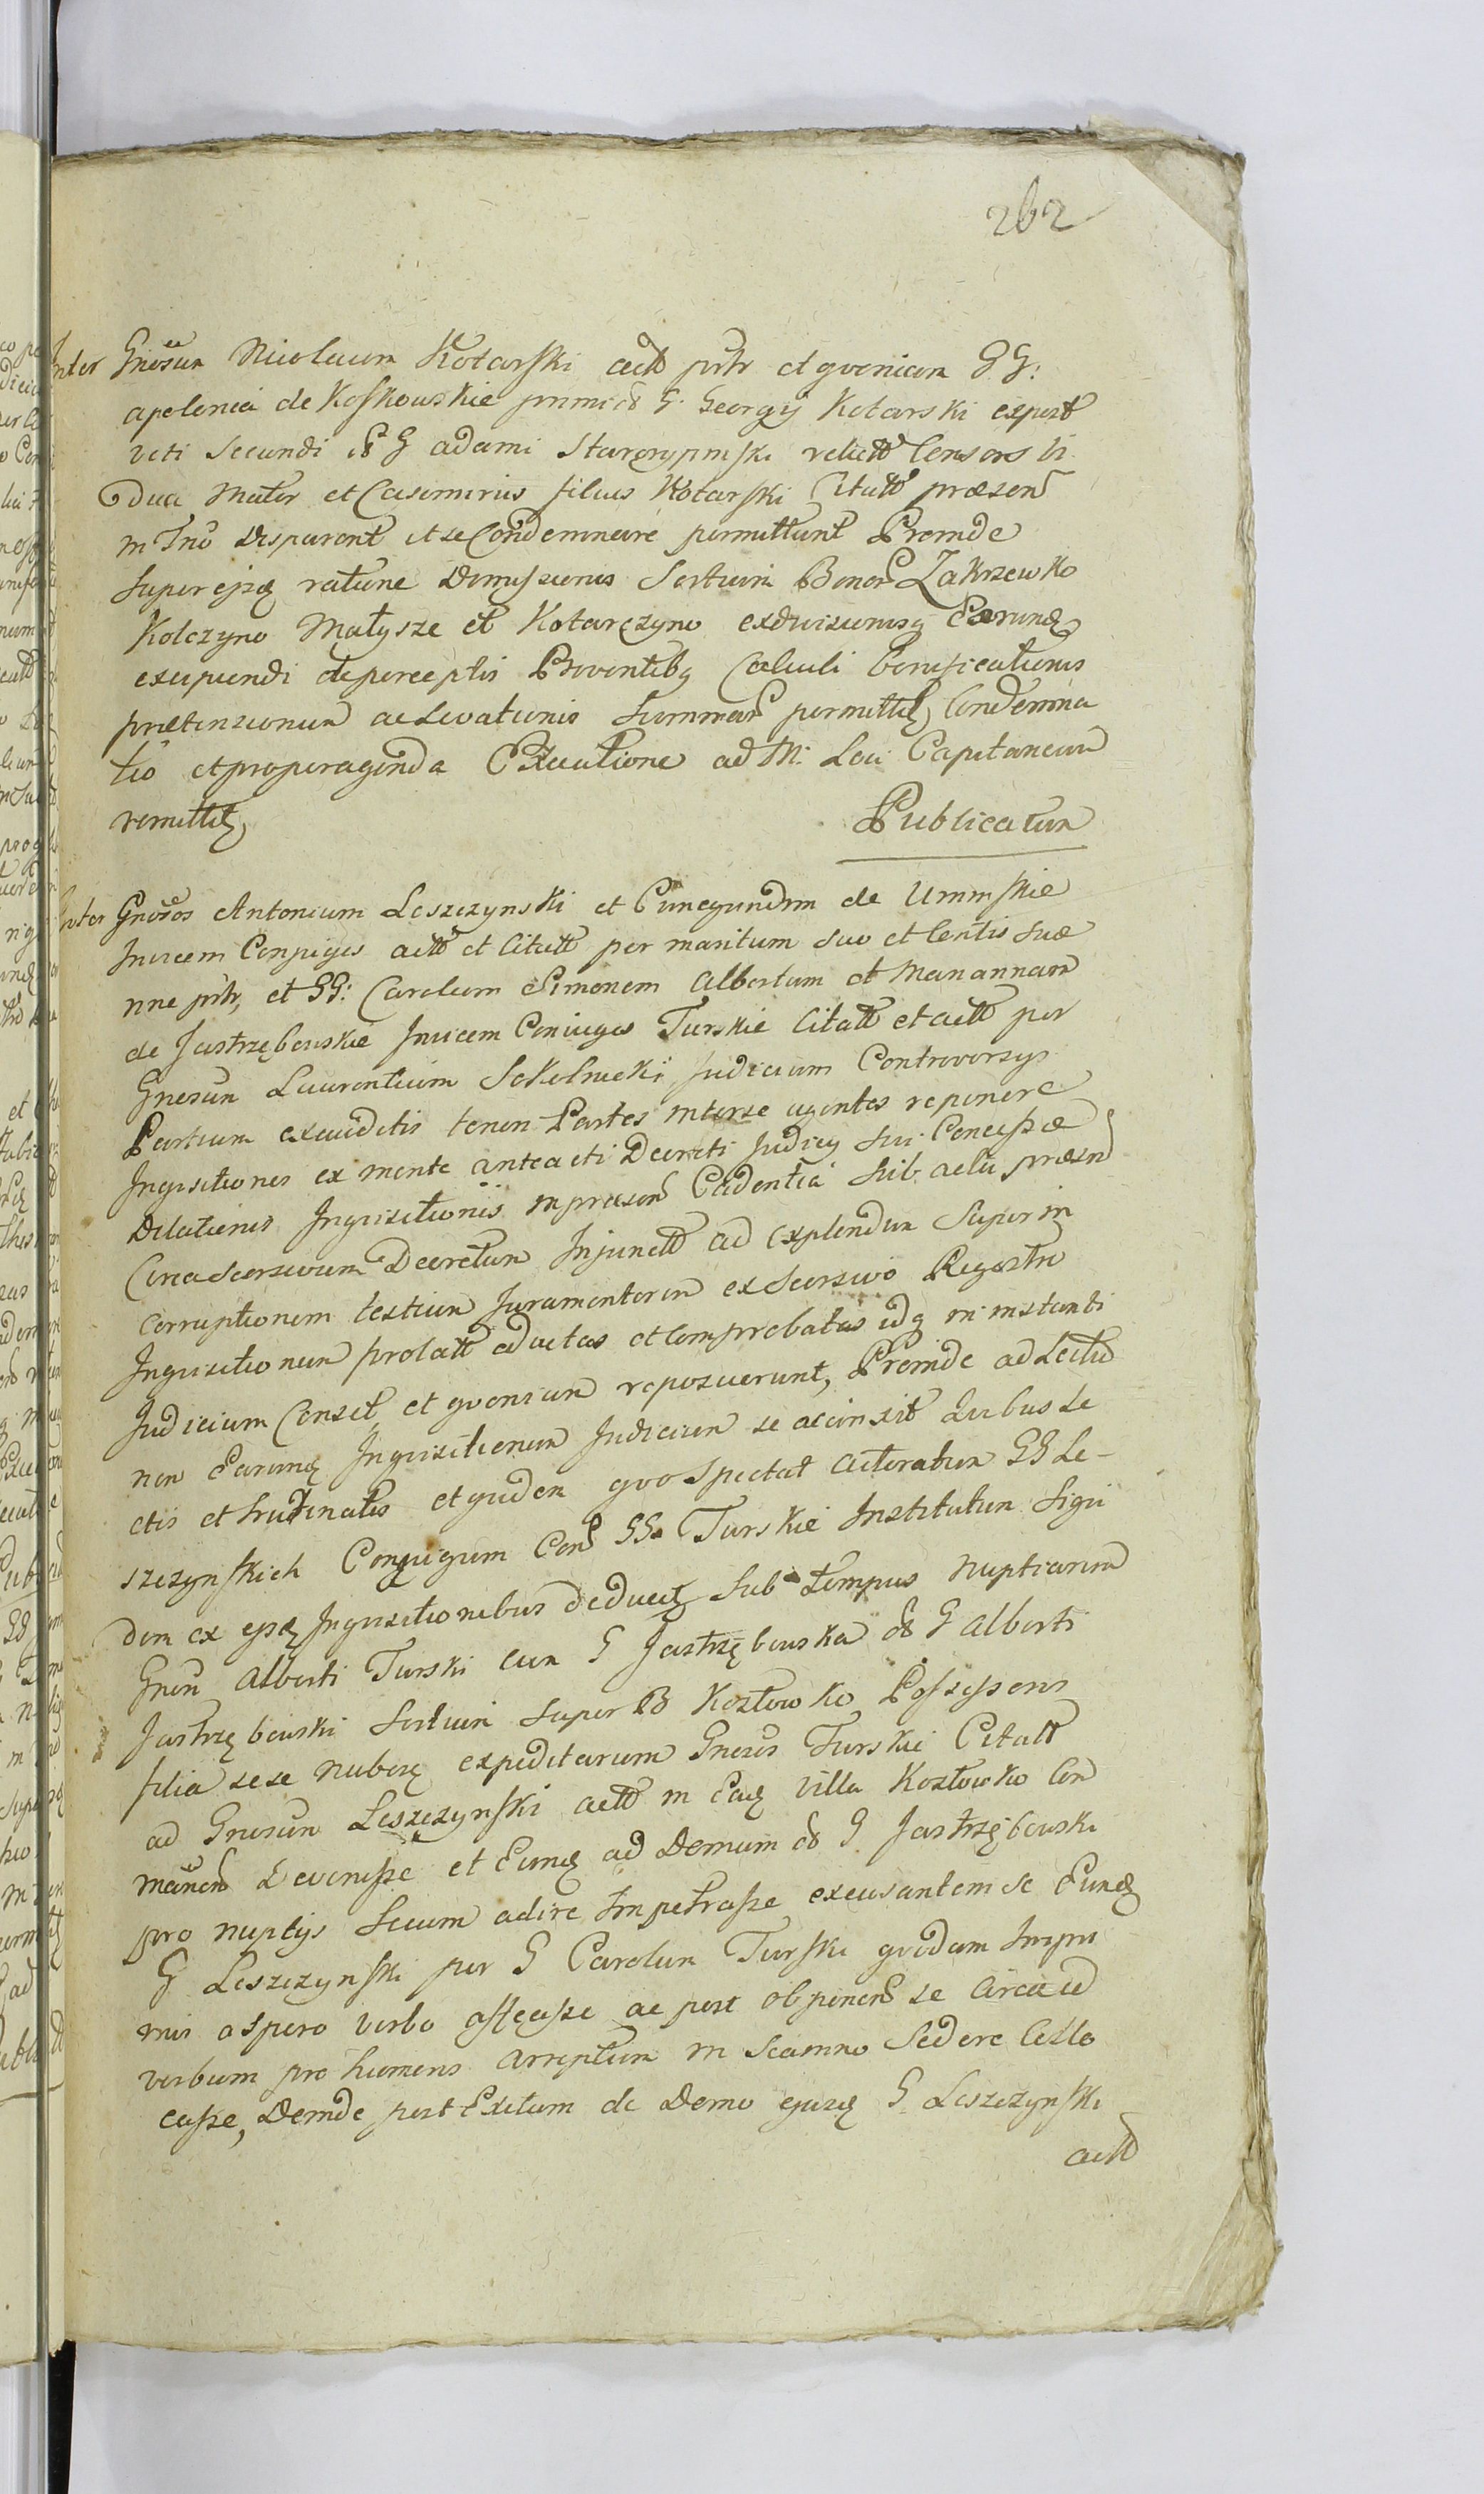 262
Inter Gnosum Nicolaum Kotarski actt prntr et gvenicon GG:
apolenia de Koskowskie primi olt G. Georgij Kotarski expost
voti Secundi olt G adami Starorypinski relictt Consors Vi
dua Mater et Casimirus filius Kotarski Citatt praesent
in Tno Disparent et se Condemnare permittunt Proinde
Super ejsq ratione Dimissionis Sortium Bonor Zakrzewko
Kolczyno Małysze et Kotarczyno exdivisionisq Earundq
excipiendi de perceptis Proventibq Calculi bonificationis
praetensionum ac Levationis Summar permittitq Condemna
tio et pro peragenda Executione ad M: Loci Capitaneum
remittitq Publicatum
Inter Gnosos Antonium Leszczynski et Cunegundim de Uminskie
Invicem Conjuges actt et Citatt per maritum suo et Contis suae
nne prtr, et GG: Carolum Simonem Albertum et Mariannam
de Jastrzębowskie Invicem Coniuges Turskie Citatt et actt per
Gnosum Laurentium Sokolnicki Judicium Controversijs
Partium exauditis tenen Partes inter se agentes reponere
Inqisitiones ex mente anteacti Decreti Judicij sui Concessae
Dilationis Inqisitionis in praesen Cadentia sub actu praesn
Circa Scorsivum Decretum Injunctt ad explendum Super in
corruptionem testium Juramentorum ex Scorsivo Regestro
Inqisitionum prolatt adactas et Comprobatas idq in instanti
Judicium Censet, et qvoniam reposuerunt, Proinde ad Lectio
nem Earundq Inqisitionum Judicium se accinxit Quibus Le
ctis et trutinatis et qvidem qvo Spectat actoratum GG Le-
szczynskich Conjugum Con GG Turskie Institutum Siqvi
dem ex ejsdq Inqisitionibus deducitq Sub tempus nuptiarum
Gnon Alberti Turski cum G Jastrzębowska olt G Alberti
Jastrzębowski Sortium Super B Kozłowko Possessoris
filia sese nuberq expeditarum Gnosos Turskie Citatt
ad Gnosum Leszczynski actt in Eadq Villa Kozłowko Com
manen Devenisse et Eundq ad Domum olt G Jastrzębowski
pro nuptijs Secum adire Impetrasse excusantem se Eundq
G Leszczynski per G Carolum Turski qvodam Impri
mis aspero verbo affecisse ac post obponen se Circa id
verbum pro humeros arreptum in Scamno Sedere Collo
casse, Deinde post Exitum de Domo ejusdq G Leszczynski
actt